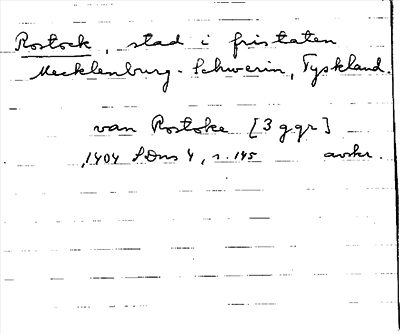 Rostock, stad i fristaten
Mecklenburg-Schwerin, Tyskland.
van Rostoke [3 ggr]
1404 SDns 4, s. 145 avskr.